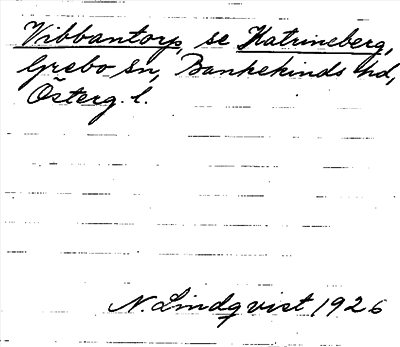 Vibbantorp, se Katrineberg,
Grebo sn, Bankekinds hd,
Österg. l.
N. Lindqvist 1926